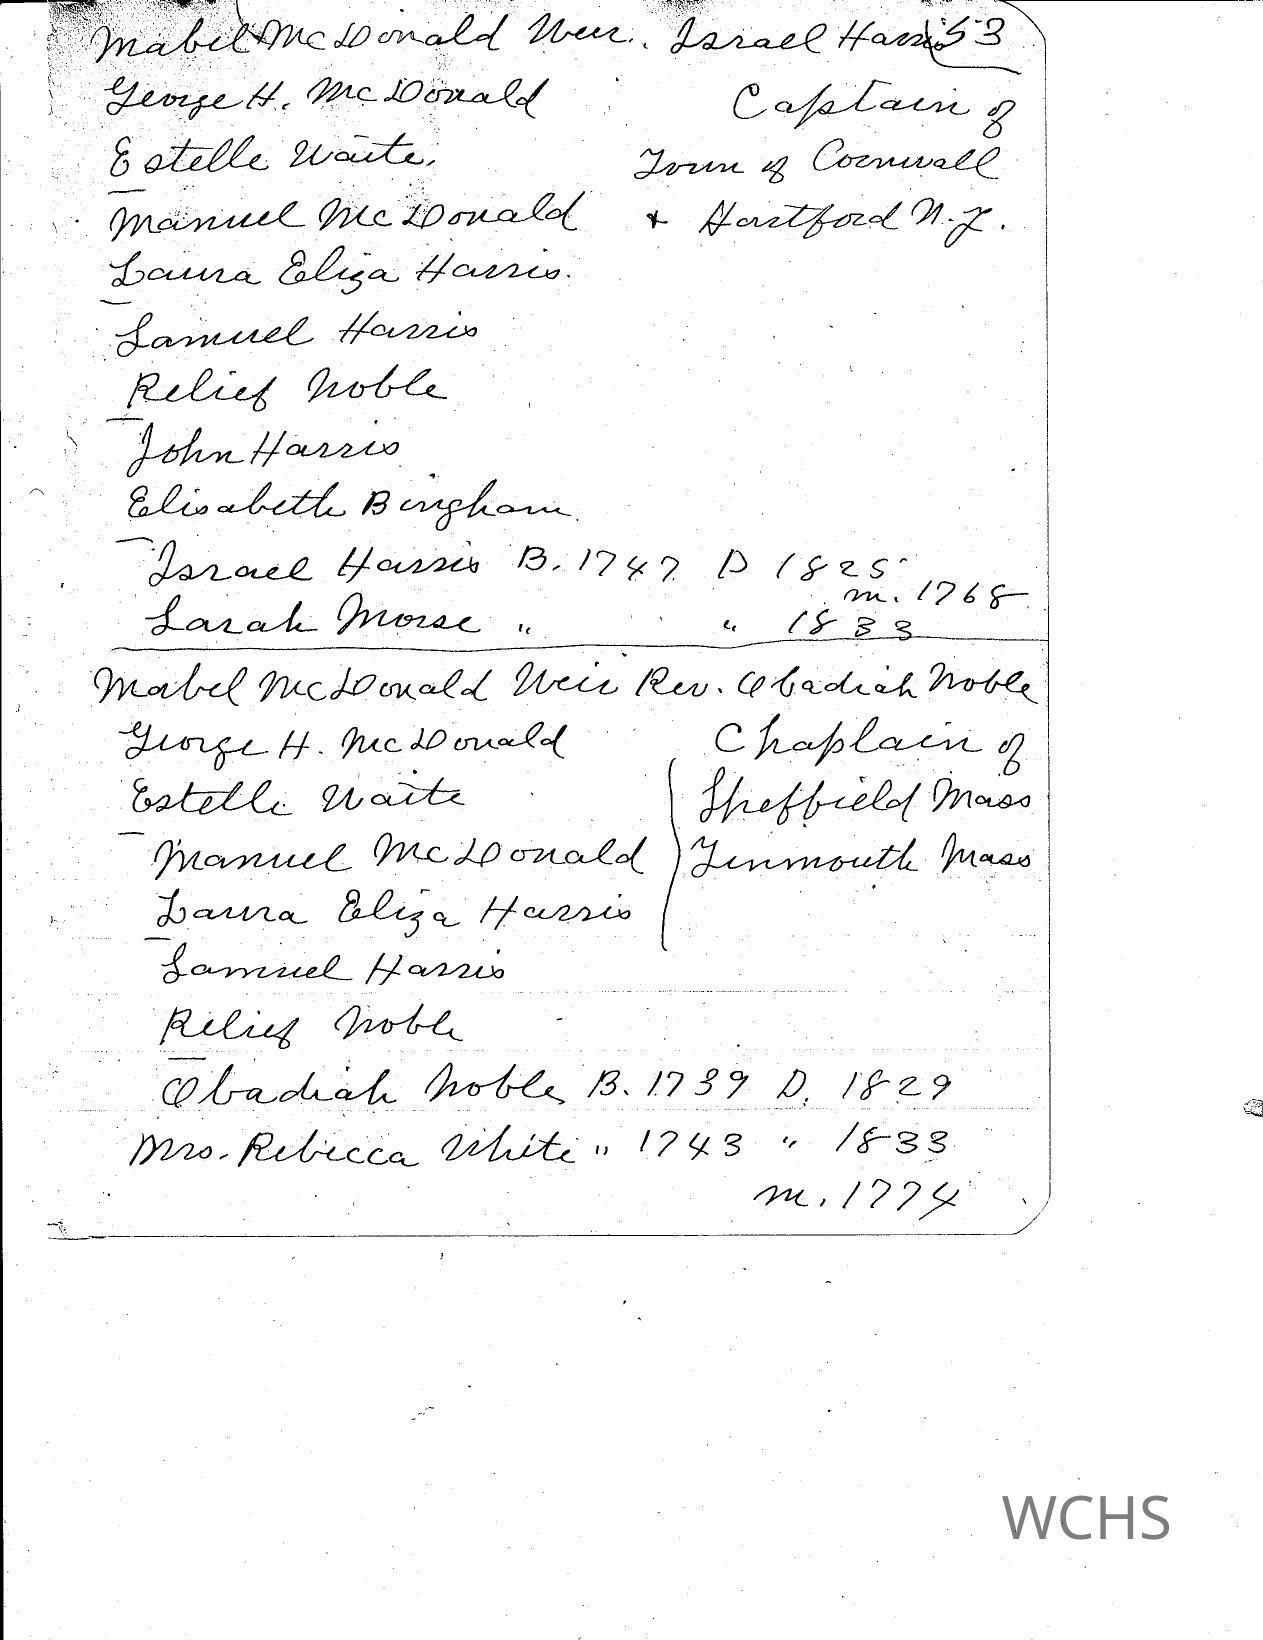 Mabel McDonald Weir. Israel Harris 53
George H. McDonald Captain of
Estelle Waite. Town of Cornwall
Manuel McDonald + Hartford N.Y.
Laura Eliza Harris.
Samuel Harris
Relief Noble
John Harris
Elisabeth Bingham
Israel Harris B. 1747 D 1825
m. 1768
Sarah Morse " " 1833
Mabel McDonald Weir Rev. Obadiah Noble
George H. McDonald Chaplain of
Estelle Waite Sheffield Mass
Manuel McDonald Tinmouth Mass
Laura Eliza Harris
Samuel Harris
Relief Noble
Obadiah Noble B. 1739 D. 1829
Mrs. Rebecca White " 1743 " 1833
m. 1774
WCHS